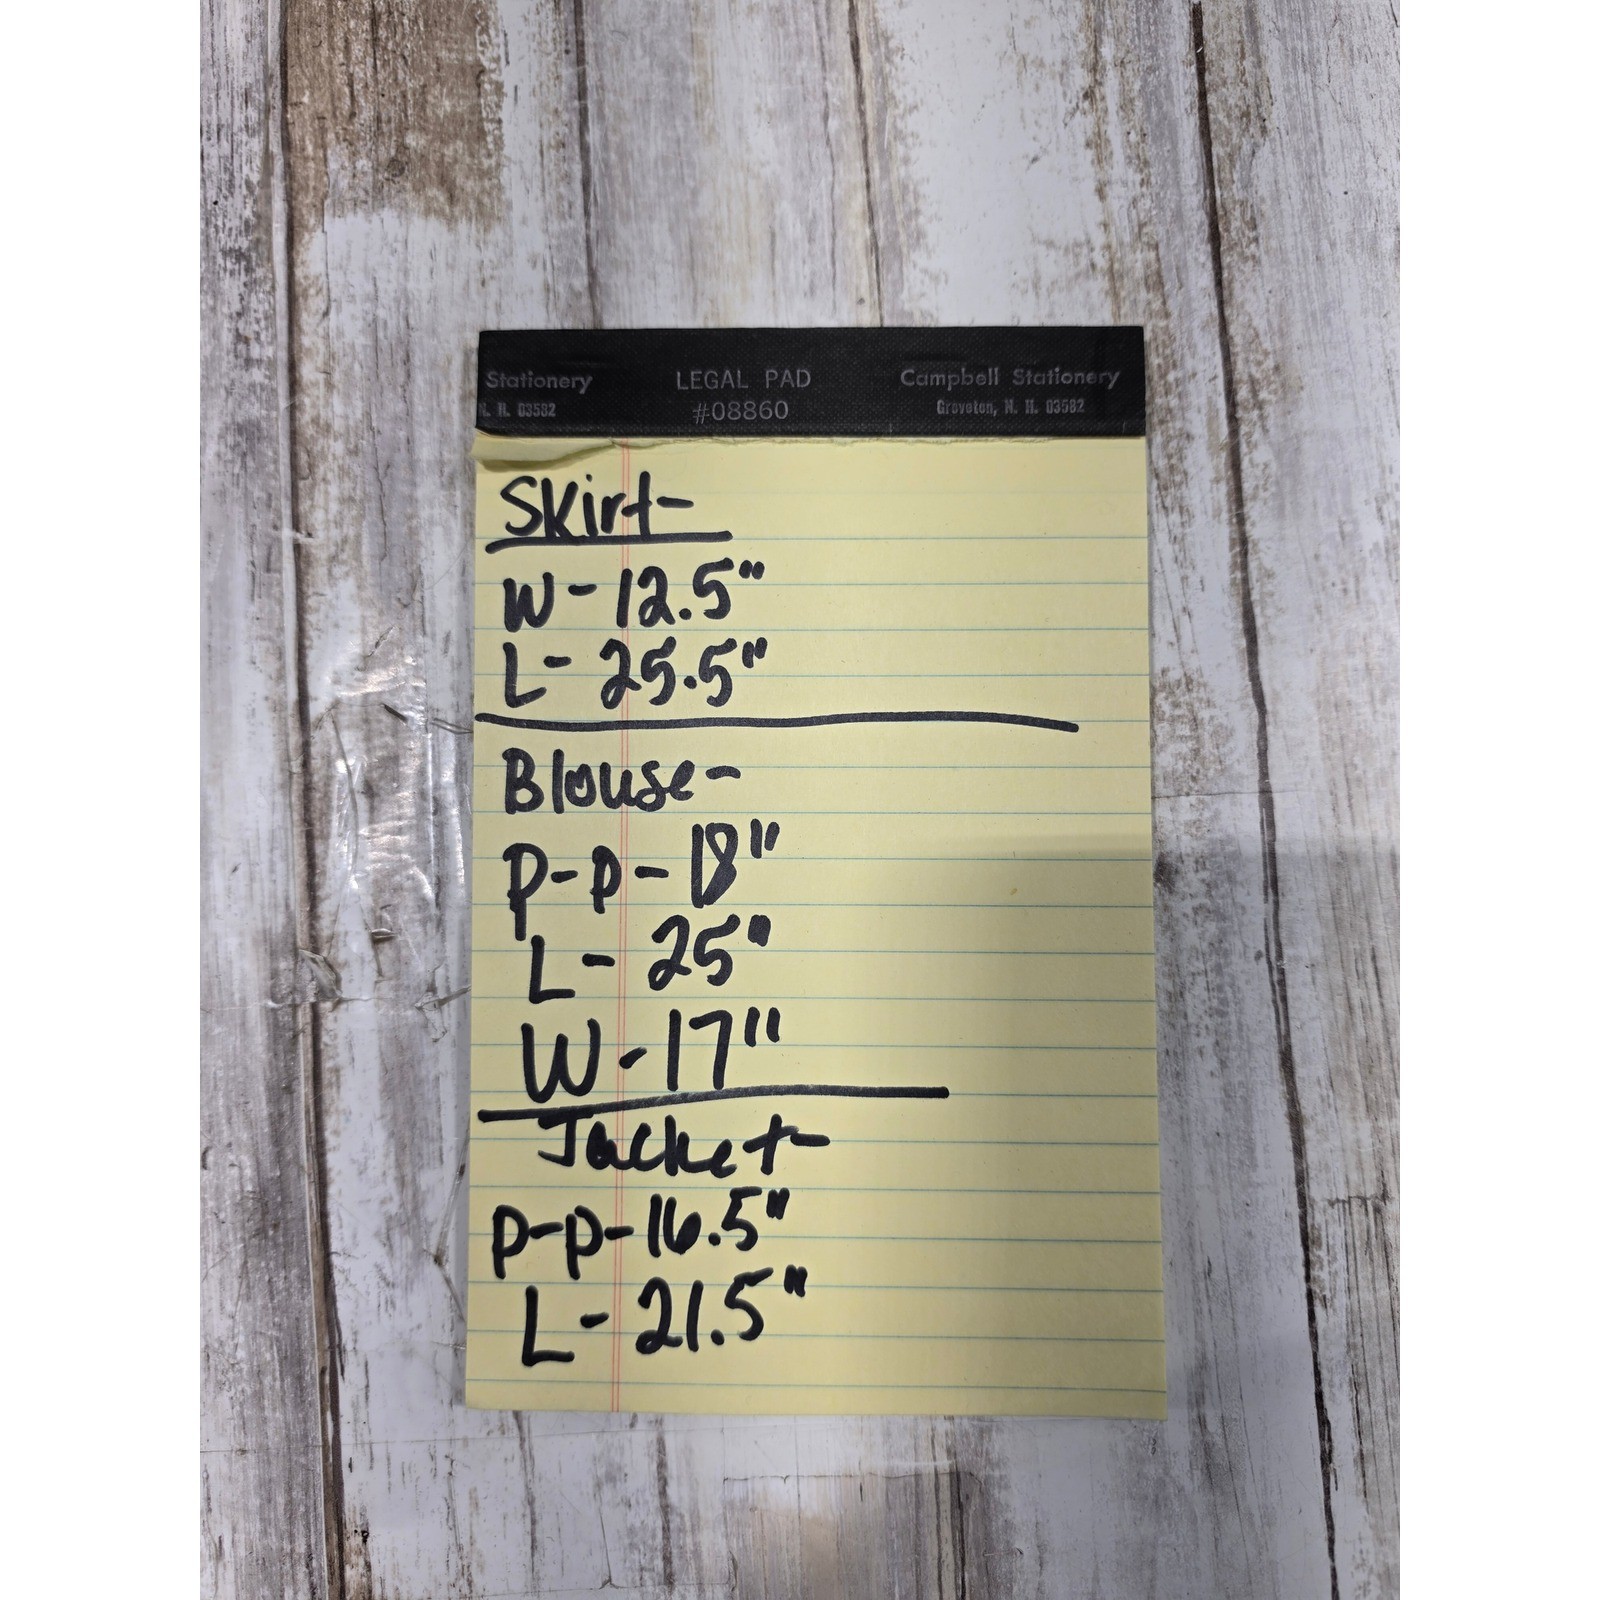 Stationery LEGAL PAD Campbell Stationery
N. H. 03582 #08860 Groveton, N. H. 03582
Skirt-
W-12.5"
L-25.5"
Blouse-
P-P-18"
L-25"
W-17"
Jacket-
P-P-16.5"
L-21.5"